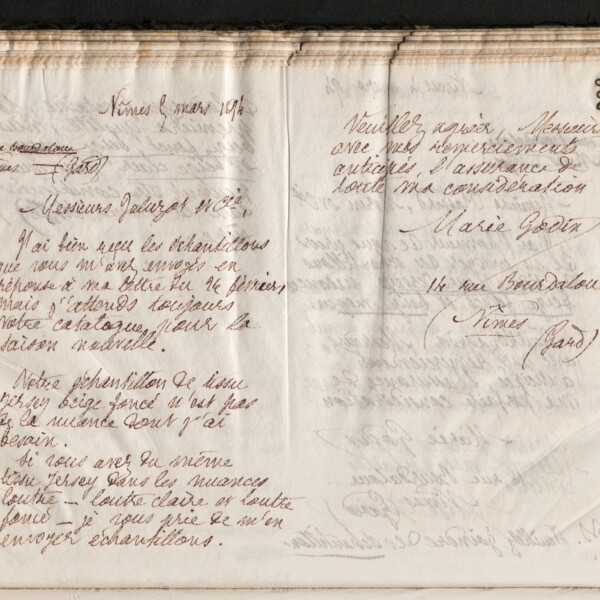 Nîmes 5 mars 1894
rue Bourdaloue
Nîmes — (Gard)
Messieurs Jaluzot et Cie,
J'ai bien reçu les échantillons
que vous m'avez envoyés en
réponse à ma lettre du 26 février,
mais j'attends toujours
votre catalogue pour la
saison nouvelle.
Votre échantillon de tissu
jersey beige foncé n'est pas
de la nuance dont j'ai
besoin.
Si vous avez du même
tissu jersey dans les nuances
loutre — loutre claire et loutre
foncé — je vous prie de m'en
envoyer échantillons.
Veuillez agréer, Messieurs
avec mes remerciements
anticipés, l'assurance de
toute ma considération
Marie Godin
14 rue Bourdaloue
Nîmes
(Gard)